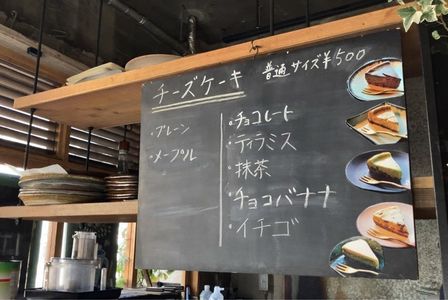 チーズケーキ 普通サイズ¥500
・プレーン
・メープル
・チョコレート
・ティラミス
・抹茶
・チョコバナナ
・イチゴ